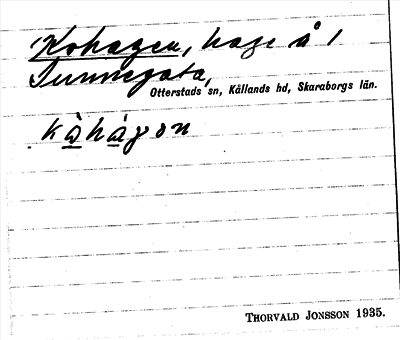 Kohagen, hage å 1
Sunnegata,
Otterstads sn, Kållands hd, Skaraborgs län.
kàhágən
THORVALD JONSSON 1935.